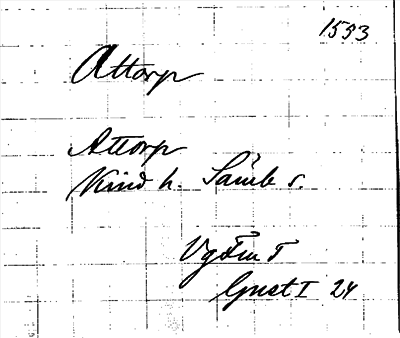 1593
Attorp
Attorp
Kind h. Sämb s.
Gust I 24